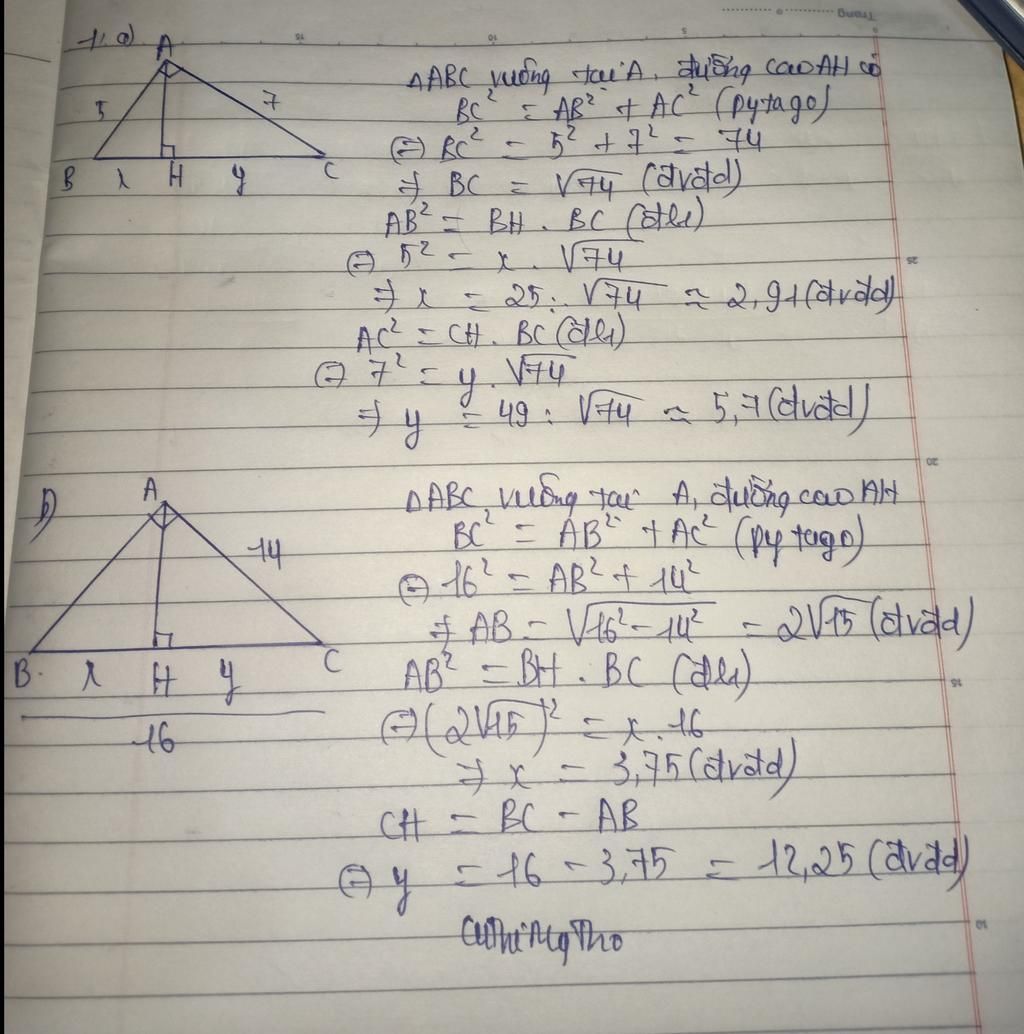 Trang
15 10 5 0
1. a)
A
5 7
B x H y C
ΔABC vuông tại A, đường cao AH có
BC² = AB² + AC² (pytago)
⇔ BC² = 5² + 7² = 74
⇒ BC = √74 (đvđd)
AB² = BH . BC (đl1)
⇔ 5² = x . √74
⇒ x = 25 : √74 ≈ 2,91 (đvđd)
AC² = CH . BC (đl1)
⇔ 7² = y . √74
⇒ y = 49 : √74 ≈ 5,7 (đvđd)
25
20
15
10
b)
A
14
B x H y C
16
ΔABC vuông tại A, đường cao AH
BC² = AB² + AC² (py tago)
⇔ 16² = AB² + 14²
⇒ AB = √16² - 14² = 2√15 (đvđd)
AB² = BH . BC (đl1)
⇔ (2√15)² = x . 16
⇒ x = 3,75 (đvđd)
CH = BC - AB
⇔ y = 16 - 3,75 = 12,25 (đvđd)